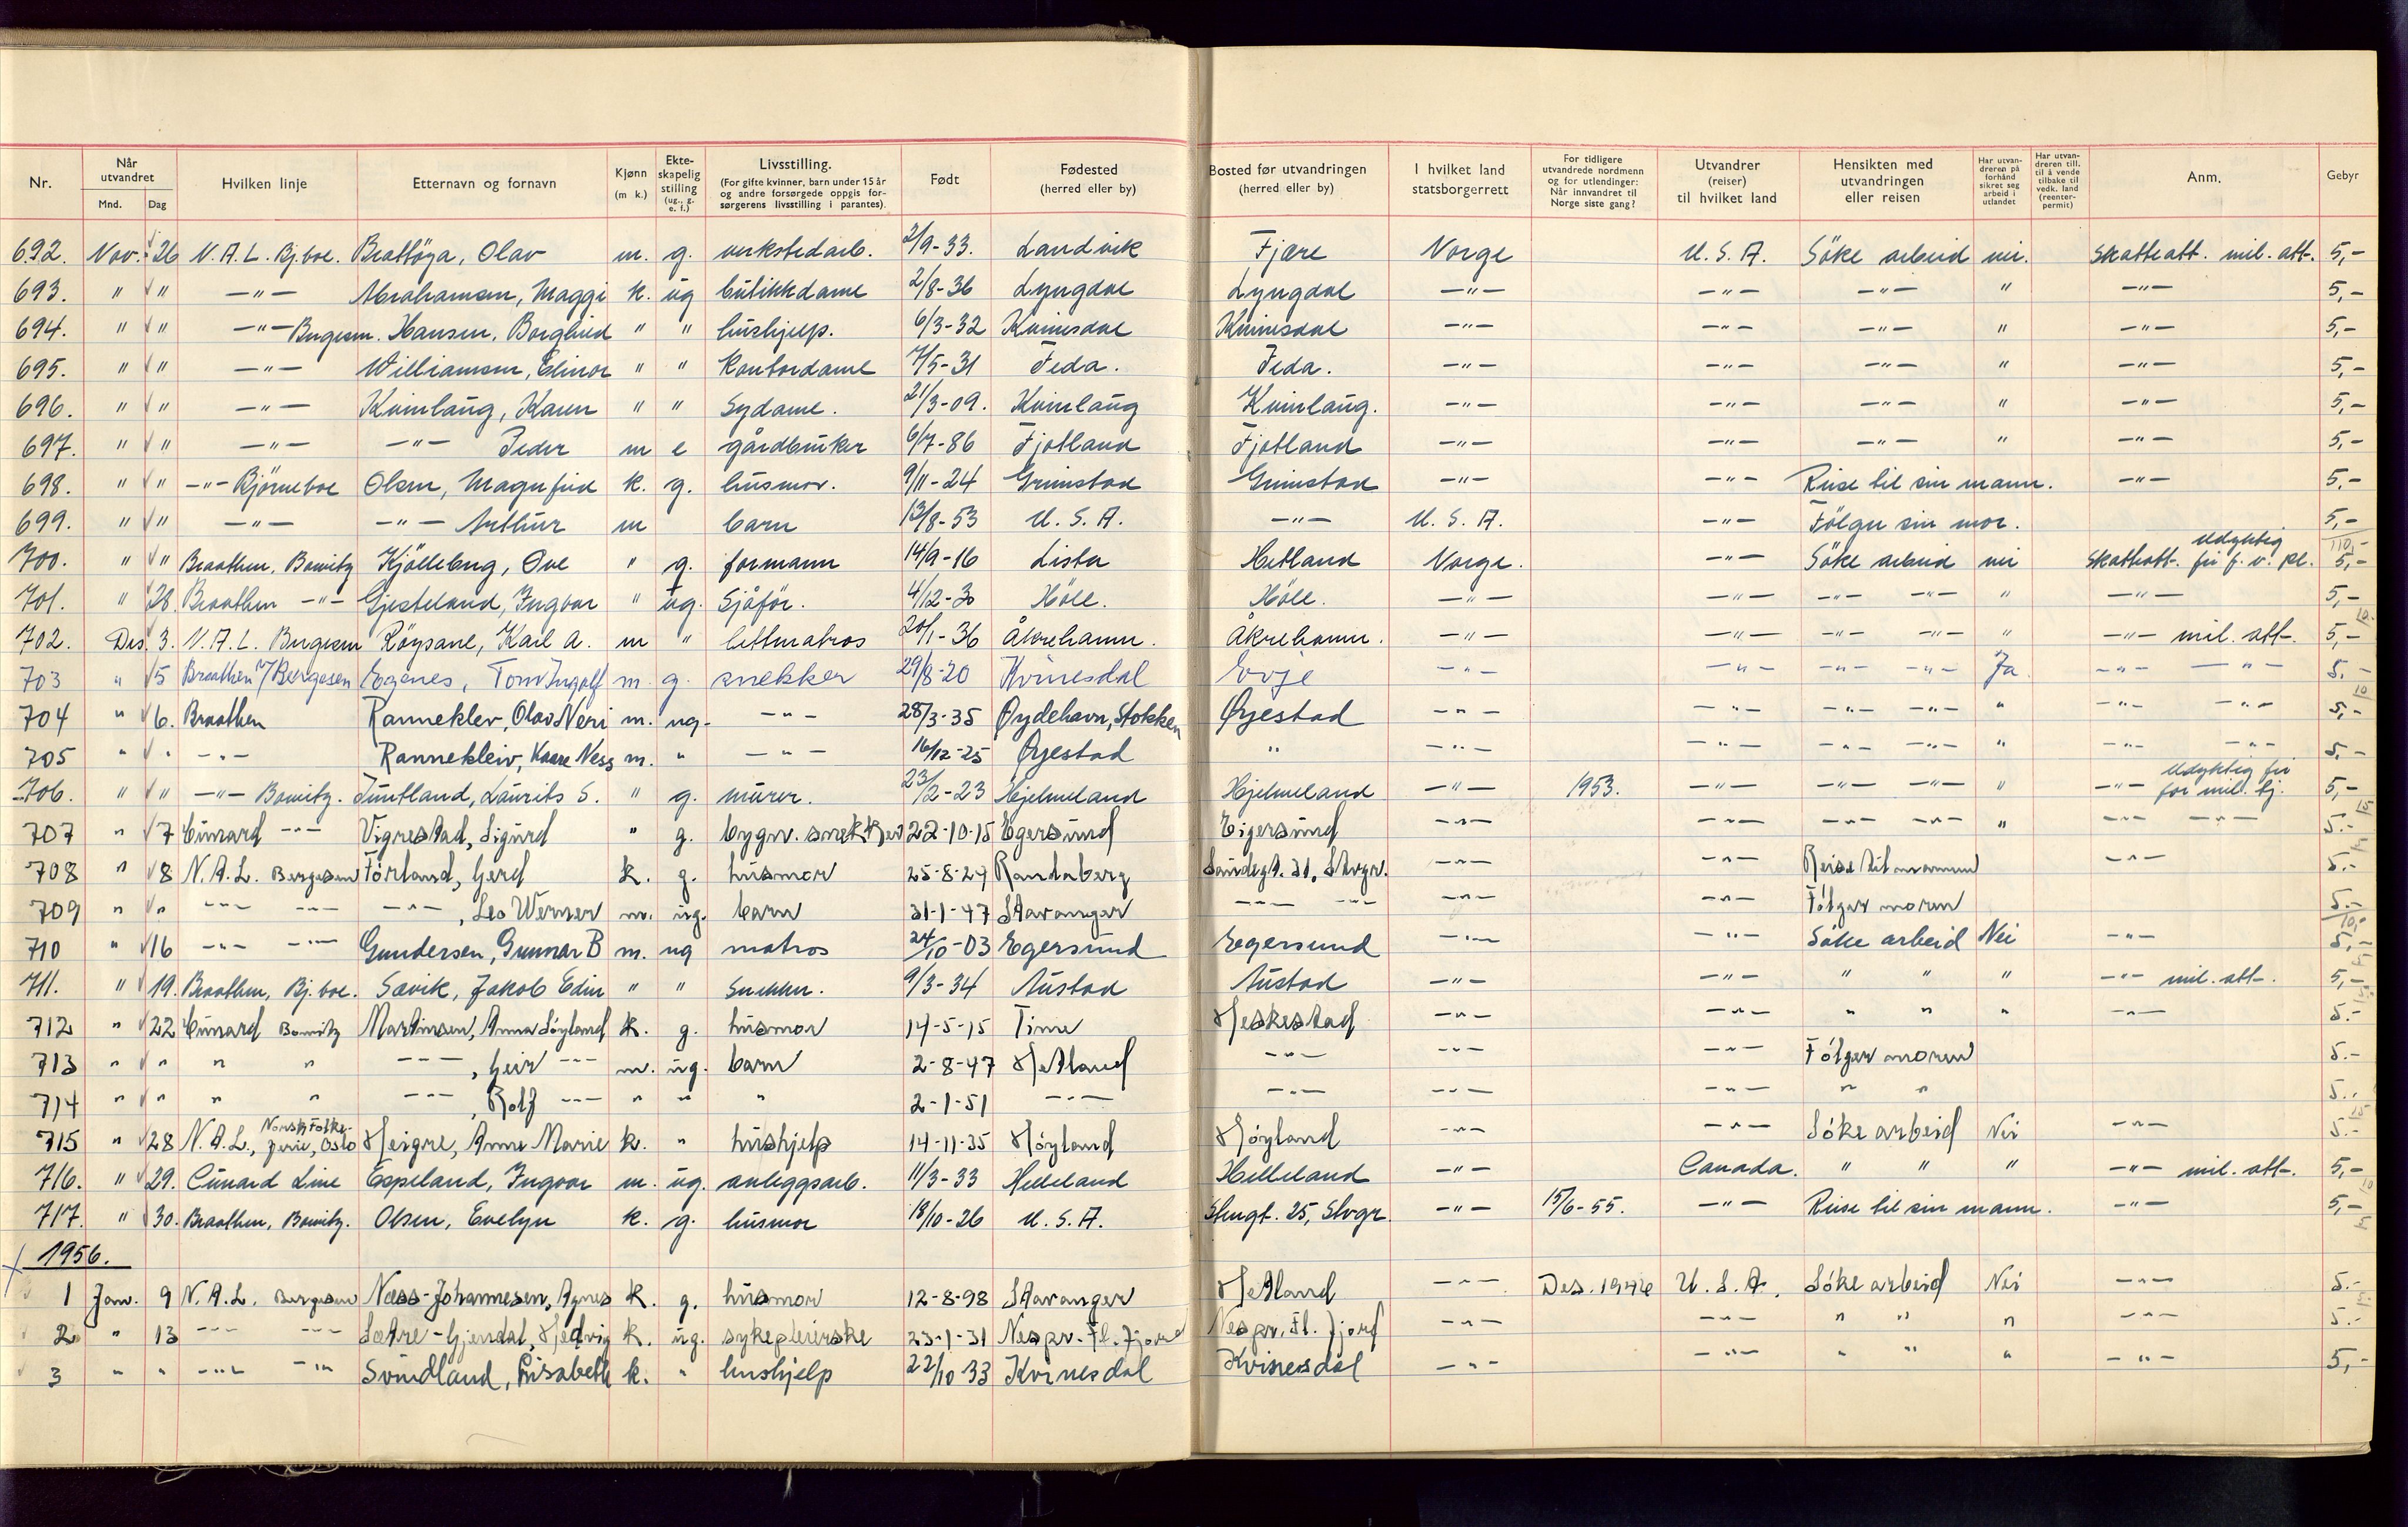 Nr. Når utvandret Mnd. Dag Hvilken linje Etternavn og fornavn Kjønn (m k.) Ekteskapelig stilling (ug., g. e. f.) Livsstilling. (For gifte kvinner, barn under 15 år og andre forsørgede oppgis forsørgerens livsstilling i parantes). Født Fødested (herred eller by) Bosted før utvandringen (herred eller by) I hvilket land statsborgerrett For tidligere utvandrede nordmenn og for utlendinger: Når innvandret til Norge siste gang? Utvandrer (reiser) til hvilket land Hensikten med utvandringen eller reisen Har utvandreren på forhånd sikret seg arbeid i utlandet Har utvandreren till. til å vende tilbake til vedk. land (reenterpermit) Anm. Gebyr
692. Nov. 26 N.A.L. Bj.boe. Brattöya, Olav m. g. verkstedarb. 2/9-33. Landvik Fjære Norge U.S.A. Söke arbeid nei. Skatteatt. mil. att. 5,-
693. " " -"- Abrahamsen, Maggi k. ug butikkdame 2/8-36 Lyngdal Lyngdal -"- -"- -"- " -"- 5,-
694. " " -"- Bergesen. Hansen, Borghild " " hushjelp. 6/3-32 Kvinesdal Kvinesdal -"- -"- -"- " -"- 5,-
695. " " -"- Williamsen, Elinor " " Kontordame 7/5-31 Feda. Feda. -"- -"- -"- " -"- 5,-
696. " " -"- Kvinlaug, Karen " " Sydame. 21/3-09. Kvinlaug Kvinlaug. -"- -"- -"- " -"- 5,-
697. " " -"- -"- Peder m e gårdbruker 6/7-86 Fjotland Fjotland -"- -"- -"- " -"- 5,-
698. " " -"- Björneboe Olsen, Magnfrid k. g. husmor. 9/11-24 Grimstad Grimstad -"- -"- Reise til sin mann. -"- 5,-
699. " " -"- -"- Arthur m barn 13/8-53 U.S.A. -"- U.S.A. -"- Fölger sin mor. 5,-
700. " " Braathen, Bowitz Kjöllebug, Ove " g. formann 14/9-16 Lista Hetland Norge. -"- Söke arbeid nei Skatteatt. Udyktig fri f. v. pl. 5,-
701. " 28. Braathen -"- Gjesteland, Ingvar " ug. Sjåför. 4/12-30 Höle. Höle. -"- -"- -"- -"- " -"- 5,-
702. Des. 3. N.A.L. Bergesen Röysane, Karl A. m " lettmatros 20/1-36 Åkrehamn. Åkrehamn. -"- -"- -"- -"- " -"- mil. att. 5,-
703 " 5 Braathen v/Bergesen Egenes, Tom Ingolf m. g. snekker 29/8-20 Kvinesdal Evje -"- -"- -"- -"- Ja -"- -"- 5,-
704 " 6. Braathen Ranneklev, Olav Neri m. ug. -"- 28/3-35 Øydehavn, Stokken Øyestad -"- -"- -"- -"- " -"- -"- 5,-
705 " " -"- Rannekleiv, Kaare Ness m. " -"- 16/12-25 Øyestad " -"- -"- -"- -"- " -"- -"- 5,-
706. " " -"- Bowitz. Tuntland, Laurits S. " g. murer. 23/2-23 Hjelmeland Hjelmeland -"- 1953. -"- -"- -"- " -"- Udyktig fri for mil. tj. 5,-
707 " 7 Cunard -"- Vigrestad, Sigurd " g. bygn. snekker 22-10-15 Egersund Eigersund -"- -"- -"- -"- " -"- -"- 5.-
708 " 8 N.A.L. Bergesen Förland, Gerd k. g. husmor 25-8-27 Randaberg Sandegt. 31, Stvgr. -"- -"- Reise til mannen -"- 5.-
709 " " -"- -"- -"-, Leo Werner m. ug. barn 31-1-47 Stavanger -"- -"- -"- -"- Følger moren 5.-
710 " 16 -"- -"- Gundersen, Gunnar B m. ug matros 24/10-03 Egersund Egersund -"- -"- Söke arbeid Nei -"- 5,-
711. " 19. Braathen, Bj.boe. Sævik, Jakob Edin " " Snekker. 9/3-34 Austad Austad -"- -"- " " " -"- mil. att. 5,-
712 " 22 Cunard Bowitz Martinsen, Anna Söyland k. g. husmor 14-5-15 Time Heskestad -"- -"- " " " -"- 5.-
713 " " " " -"-, Geir -"- m. ug. barn 2-8-47 Hetland -"- -"- -"- Følger moren 5.-
714 " " " " -"-, Rolf -"- " " " 2-1-51 -"- -"- -"- -"- " " 5.-
715 " 28 N.A.L., Norsk Folkeferie, Oslo Heigre, Anne Marie k. " hushjelp 14-11-35 Høyland Høyland -"- -"- Söke arbeid Nei -"- 5.-
716. " 29. Cunard Line Espeland, Ingvar m. ug. anleggsarb. 11/3-33 Helleland Helleland -"- Canada. " " " -"- mil. att. 5,-
717. " 30. Braathen, Bowitz. Olsen, Evelyn k. g. husmor 13/10-26 U.S.A. Stengt. 25, Stvgr. -"- 15/6-55. -"- Reise til sin mann. -"- 5,-
1956.
1 Jan. 9 N.A.L. Bergesen Næss-Johannesen, Agnes k. g. husmor 12-8-98 Stavanger Hetland -"- Des. 1946 U.S.A. Söke arbeid Nei -"- 5.-
2 " 13 -"- -"- Sætre-Gjendal, Hedvig k. ug. sykepleierske 23-1-31 Nes pr. Fl. fjord Nes pr. Fl. fjord -"- -"- " " " -"- 5.-
3 " " -"- -"- Svindland, Lisabeth k. " hushjelp 22/10 33 Kvinesdal Kvinesdal -"- -"- " " " -"- 5,-